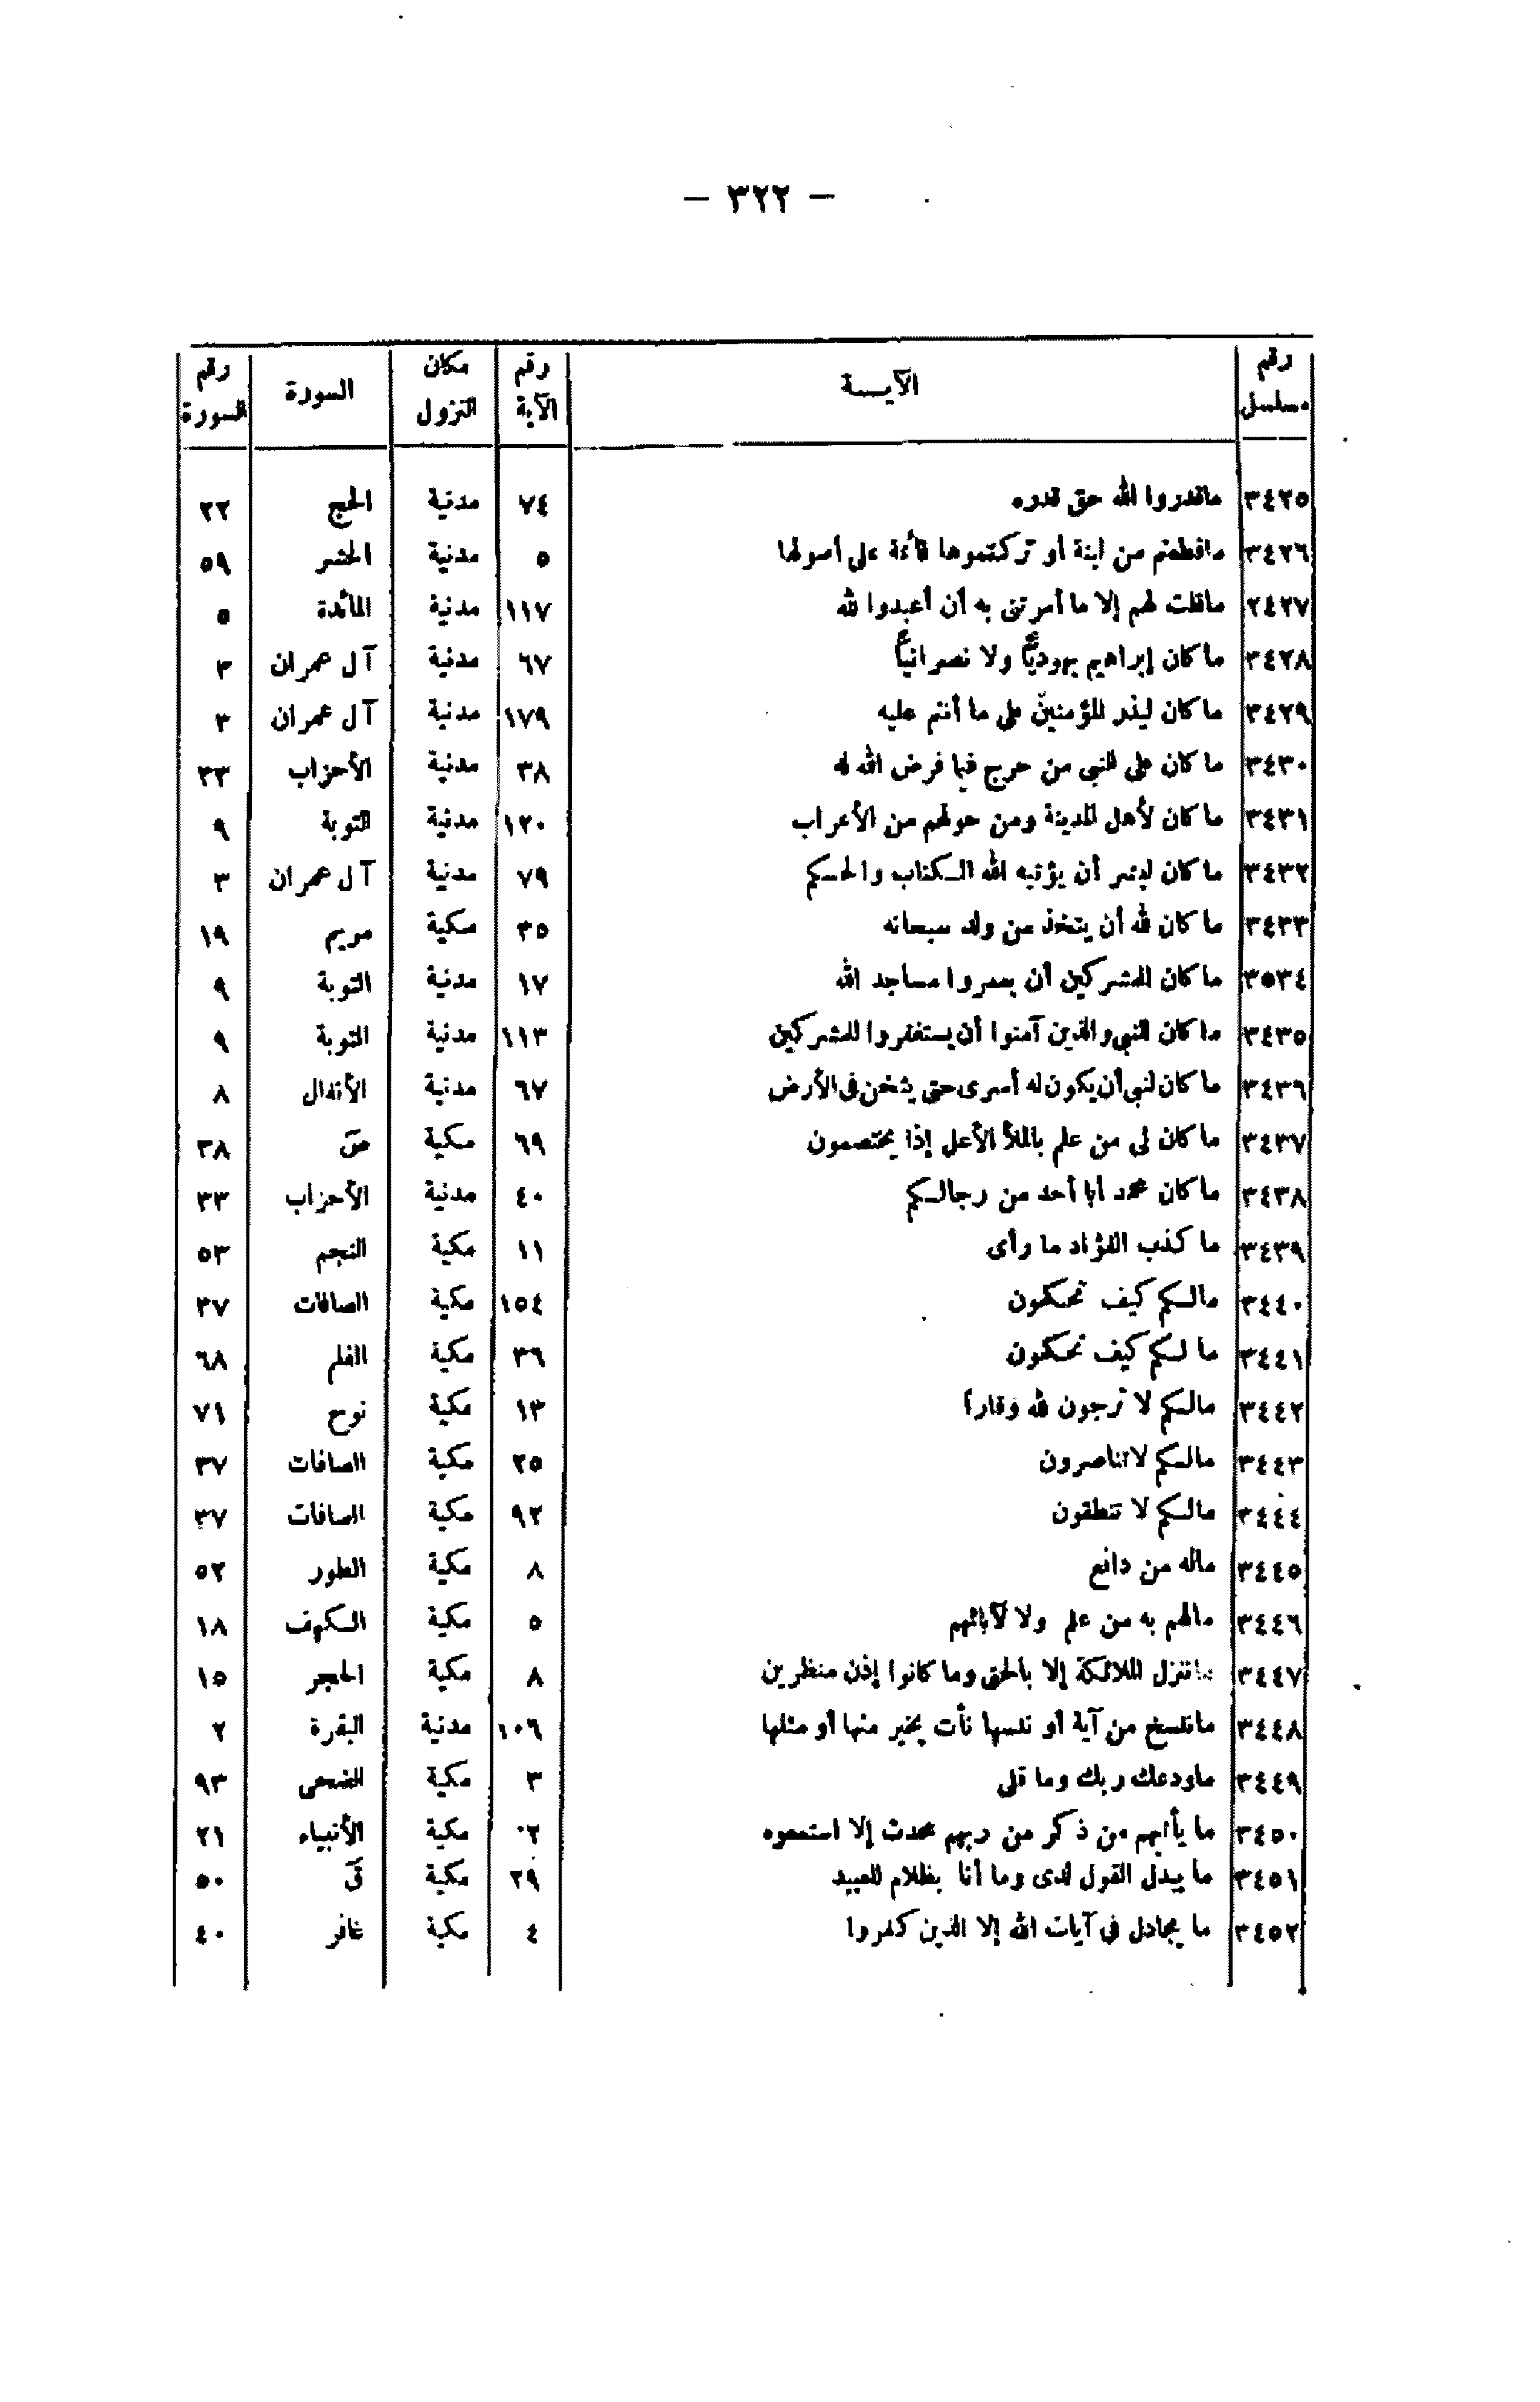 — ٣٢٢ —
رقم مسلسل الآيــة رقم الآية مكان النزول السورة رقم السورة
٣٤٢٥ ماقدروا الله حق قدره ٧٤ مدنية الحج ٢٢
٣٤٢٦ ماقطعتم من لينة أو تركتموها قائمة على أصولها ٥ مدنية الحشر ٥٩
٢٤٢٧ ماقلت لهم إلا ما أمرتنى به أن أعبدوا لله ١١٧ مدنية المائدة ٥
٣٤٢٨ ما كان إبراهيم يهوديًّا ولا نصرانيًّا ٦٧ مدنية آل عمران ٣
٣٤٢٩ ما كان ليذر المؤمنين على ما أنتم عليه ١٧٩ مدنية آل عمران ٣
٣٤٣٠ ما كان على النبى من حرج فيما فرض الله له ٣٨ مدنية الأحزاب ٣٣
٣٤٣١ ما كان لأهل المدينة ومن حولهم من الأعراب ١٢٠ مدنية التوبة ٩
٣٤٣٢ ما كان لبشر أن يؤتيه الله الكتاب والحكم ٧٩ مدنية آل عمران ٣
٣٤٣٣ ما كان لله أن يتخذ من ولد سبحانه ٣٥ مكية مريم ١٩
٣٥٣٤ ما كان للمشركين أن يعمروا مساجد الله ١٧ مدنية التوبة ٩
٣٤٣٥ ما كان للنبي والذين آمنوا أن يستغفروا للمشركين ١١٣ مدنية التوبة ٩
٣٤٣٦ ما كان لنبي أن يكون له أسرى حتى يثخن فى الأرض ٦٧ مدنية الأنفال ٨
٣٤٣٧ ما كان لى من علم بالملأ الأعلى إذا يختصمون ٦٩ مكية صۤ ٣٨
٣٤٣٨ ما كان محمد أبا أحد من رجالكم ٤٠ مدنية الأحزاب ٣٣
٣٤٣٩ ما كذب الفؤاد ما رأى ١١ مكية النجم ٥٣
٣٤٤٠ مالكم كيف تحكمون ١٥٤ مكية الصافات ٣٧
٣٤٤١ ما لكم كيف تحكمون ٣٦ مكية القلم ٦٨
٣٤٤٢ مالكم لا ترجون لله وقارا ١٣ مكية نوح ٧١
٣٤٤٣ مالكم لاتناصرون ٢٥ مكية الصافات ٣٧
٣٤٤٤ مالكم لا تنطقون ٩٢ مكية الصافات ٣٧
٣٤٤٥ ماله من دافع ٨ مكية الطور ٥٢
٣٤٤٦ مالهم به من علم ولا لآبائهم ٥ مكية الكهف ١٨
٣٤٤٧ ماننزل الملائكة إلا بالحق وما كانوا إذن منظرين ٨ مكية الحجر ١٥
٣٤٤٨ ماننسخ من آية أو ننسها نأت بخير منها أو مثلها ١٠٦ مدنية البقرة ٢
٣٤٤٩ ماودعك ربك وما قلى ٣ مكية الضحى ٩٣
٣٤٥٠ ما يأتيهم من ذكر من ربهم محدث إلا استمعوه ٠٢ مكية الأنبياء ٢١
٣٤٥١ ما يبدل القول لدى وما أنا بظلام للعبيد ٢٩ مكية قۤ ٥٠
٣٤٥٢ ما يجادل فى آيات الله إلا الذين كفروا ٤ مكية غافر ٤٠